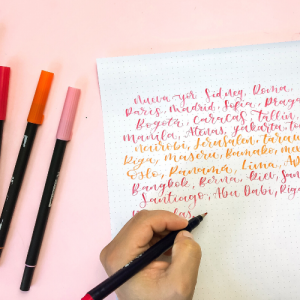 Nueva York, Sidney, Roma,
París, Madrid, Sofía, Praga
Bogotá, Caracas, Tallin,
Manila, Atenas, Yakarta, to
Nairobi, Jerusalén, Tarawa
Riga, Maseru, Bamako, me
Oslo, Panamá, Lima, A
Bangkok, Berna, Kiel, San
Santiago, Abu Dabi, Rig